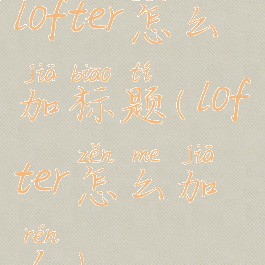 lofter怎么
jiā biāo tí
加标题(lof
zěn me jiā
ter怎么加
rén